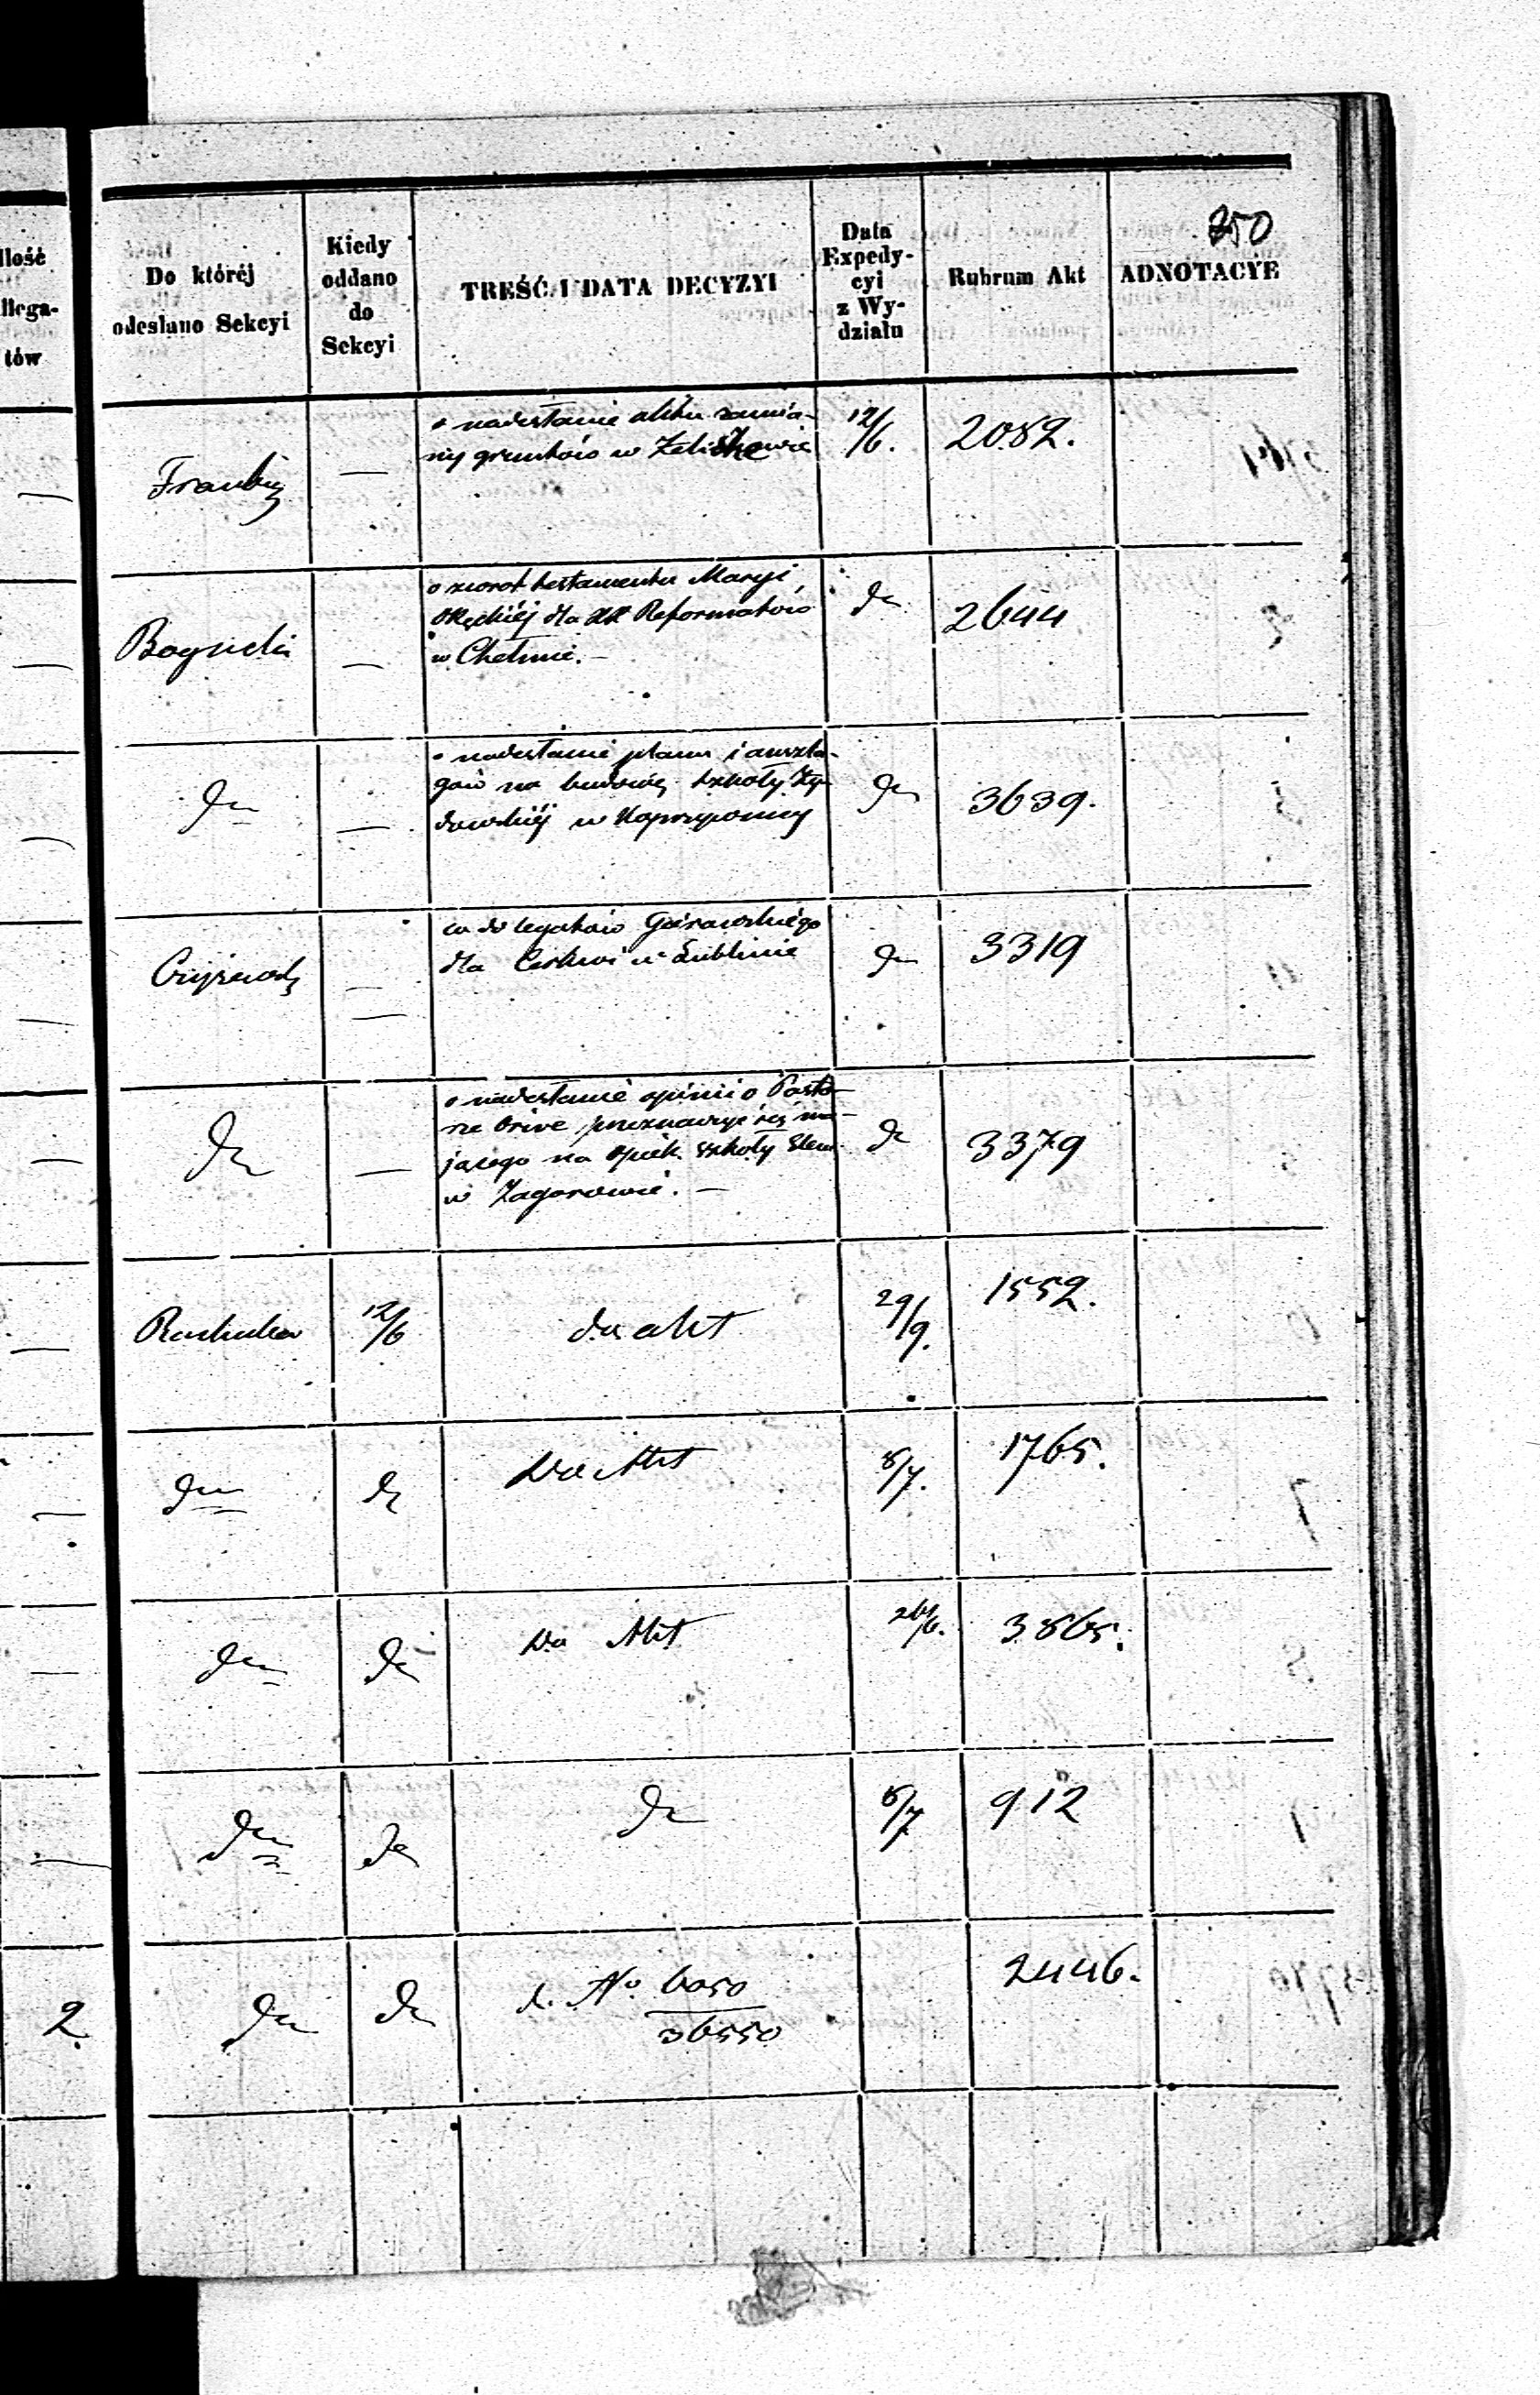 350
Ilość
llega-
tów
Do któréj
odesłano Sekcyi
Kiedy
oddano
do
Sekcyi
TREŚĆ I DATA DECYZYI
Data
Expedy-
cyi
z Wy-
działu
Rubrum Akt
ADNOTACYE
o nadesłanie aktu zamia-
ny gruntów w
12/6.
2082.
—
o zwrot testamentu Maryi
dla XX Reformatów
w Chełmie. —
do
2644
Bogucki
—
o nadesłanie planu i anszla-
gów na budowę szkoły Ży-
dowskiéj w Koprzywnicy
do
3639.
do
—
co do legatów Górawskiego
dla Cerkwi w Lublinie
do
3319
—
o nadesłanie opinii o Pasto-
rze
jącego na Opiek. szkoły Elem.
w Zagorowie. —
do
3379
do
—
12/6
do akt
29/9.
1552.
do
do
Do Akt
8/7.
1765.
do
do
Do Akt
26/6.
3865.
do
do
do
8/7
912
2
do
do
d. No. 6050
36550
2446.